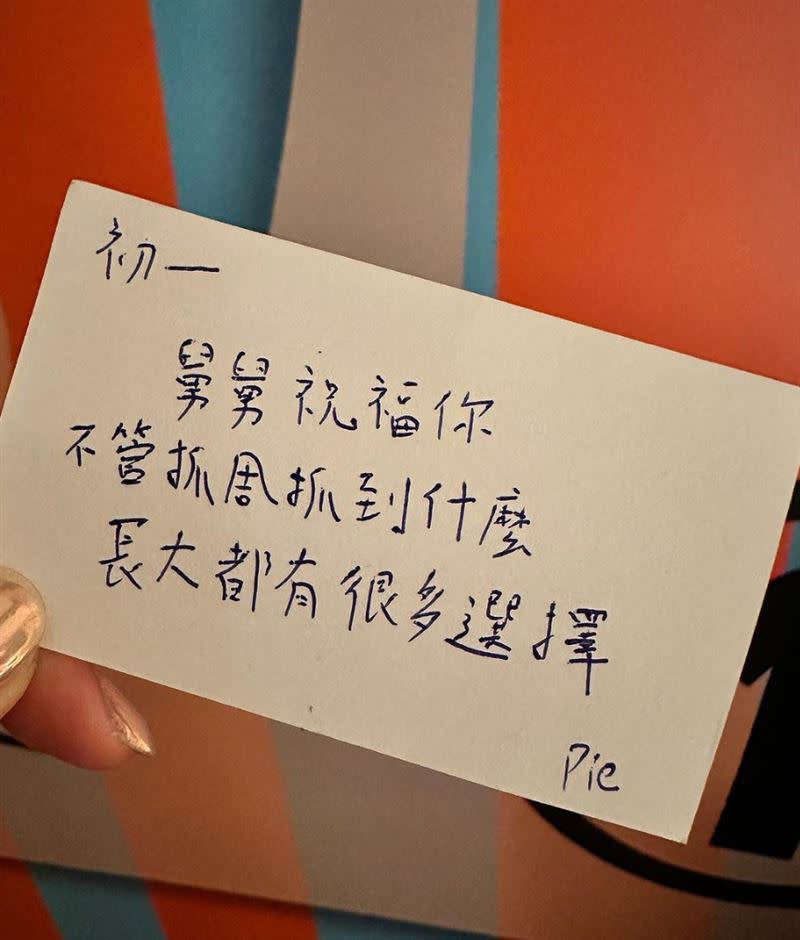 初一
舅舅祝福你
不管抓周抓到什麼
長大都有很多選擇
Pie